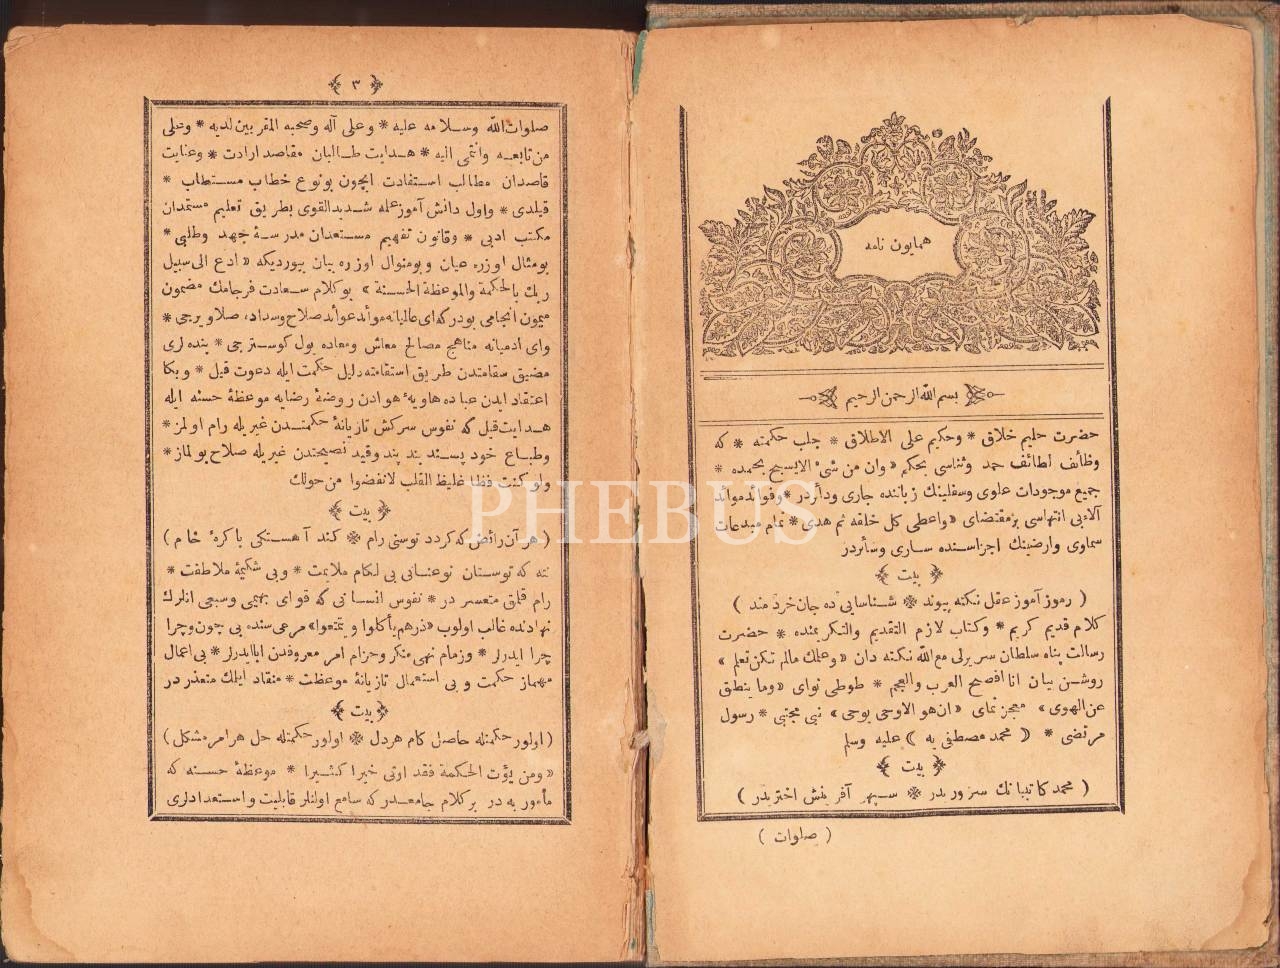 همايون نامه
بسم الله الرحمن الرحيم
حضرت حليم خلاق * وحكيم على الاطلاق * جلب حكمته * كه
وظائف لطائف حمد وثناسى بحكم « وان من شىء الا يسبح بحمده *
جميع موجودات علوى وسفلينك زباننده جارى ودائردر * وفوائد موائد
آلاءبى انتهاسى برمقتضاى « واعطى كل خلقه ثم هدى * تمام مبدعات
سماوى وارضينك اجزاسنده سارى وسائردر
بيت
( رموز آموز عقل نكته پيوند * شناسايى ده جان خردمند )
كلام قديم كريم * وكتاب لازم التقديم والتكريمنده * حضرت
رسالت پناه سلطان سرير لى مع الله نكته دان « وعلمك مالم تكن تعلم »
روشن بيان انا افصح العرب والعجم * طوطى نواى « وما ينطق
عن الهوى » معجز نماى « ان هو الا وحى يوحى » نبى مجتبى * رسول
مرتضى * ( محمد مصطفى يه ) عليه وسلم
بيت
( محمد كائناتك سروريدر * سپهر آفرينش اختريدر )
( صلوات )
٣
صلوات الله وسلامه عليه * وعلى آله وصحبه المقربين لديه * وعلى
من تابعه وانتمى اليه * هدايت طالبان مقاصد ارادت * وعنايت
قاصدان مطالب استفادت ايچون بونوع خطاب مستطاب *
قيلدى * واول دانش آموز علمه شديد القوى بطريق تعليم مستمدان
مكتب ادبى * وقانون تفهيم مستعدان مدرسۀ جهد وطلبى *
بومثال اوزره عيان وبومنوال اوزره بيان بيورديكه « ادع الى سبيل
ربك بالحكمة والموعظة الحسنة » بوكلام سعادت فرجامك مضمون
ميمون انجامى بودركه اى عالميانه موائد عوائد صلاح وسداد، صلا ويرجى *
واى آدميانه مناهج مصالح معاش ومعاده يول كوستريجى * بنده لرى
مضيق سقامتدن طريق استقامته دليل حكمت ايله دعوت قيل * وبكا
اعتقاد ايدن عباده هاويۀ هوادن روضۀ رضايه موعظۀ حسنه ايله
هدايت قيل كه نفوس سركش تازيانۀ حكمتدن غيريله رام اولمز *
وطباع خود پسند بند پند وقيد نصيحتدن غيريله صلاح بولماز *
ولو كنت فظا غليظ القلب لانفضوا من حولك
بيت
( هر آن رائض كه كردد توسنى رام * كند آهستكى با كرۀ خام )
ننه كه توسنان نوعنانى بى لكام ملايمت * وبى شكيمۀ ملاطفت *
رام قلمق متعسر در * نفوس انسانى كه قواى بهيمى وسبعى انلرك
نهادنده غالب اولوب « ذرهم يأكلوا ويتمتعوا » مرعى سنده بى چون وچرا
چرا ايدرلر * وزمام نهى منكر وحزام امر معروفدن ابا ايدرلر * بى اعمال
مهماز حكمت وبى استعمال تازيانۀ موعظت * منقاد ايلمك متعذر در
بيت
( اولور حكمتله حاصل كام هر دل * اولور حكمتله حل هر امر مشكل )
« ومن يؤت الحكمة فقد اوتى خيرا كثيرا * موعظۀ حسنه كه
مأمور به در بر كلام جامعدر كه سامع اولنلر قابليت واستعدادلرى